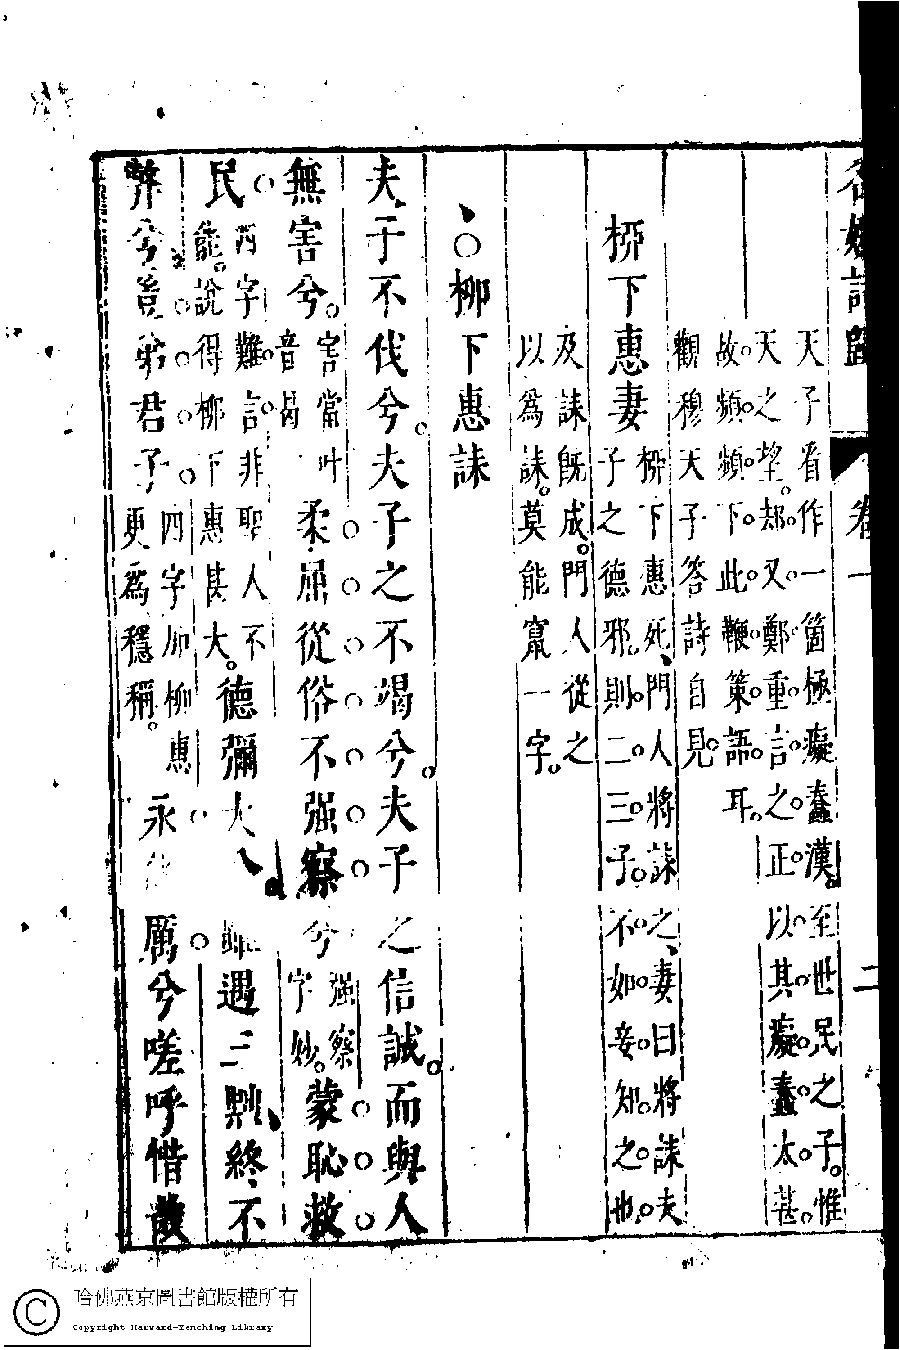 名媛詩歸 卷一 二
天子看作一箇極癡蠢漢。至世民之子。惟
天之望。却又鄭重言之。正以其癡蠢太甚。
故頻頻下此鞭策語耳。
觀穆天子答詩自見。
柳下惠妻
柳下惠死、門人將誄之、妻曰將誄夫
子之德邪、則二三子不如妾知之也。
及誄既成。門人從之
以為誄。莫能竄一字。
柳下惠誄
夫子不伐兮。夫子之不竭兮。夫子之信誠。而與人
無害兮。
害當叶
音曷
柔屈從俗不强察兮
强察
字妙。
蒙恥救
民
两字難言非聖人不
能。說得柳下惠甚大。
德彌大、雖遇三黜、終不
弊兮豈弟君子
四字加柳惠
更為穩稱。
永能厲兮嗟呼惜哉
哈佛燕京圖書館版權所有
Copyright Harvard-Yenching Library